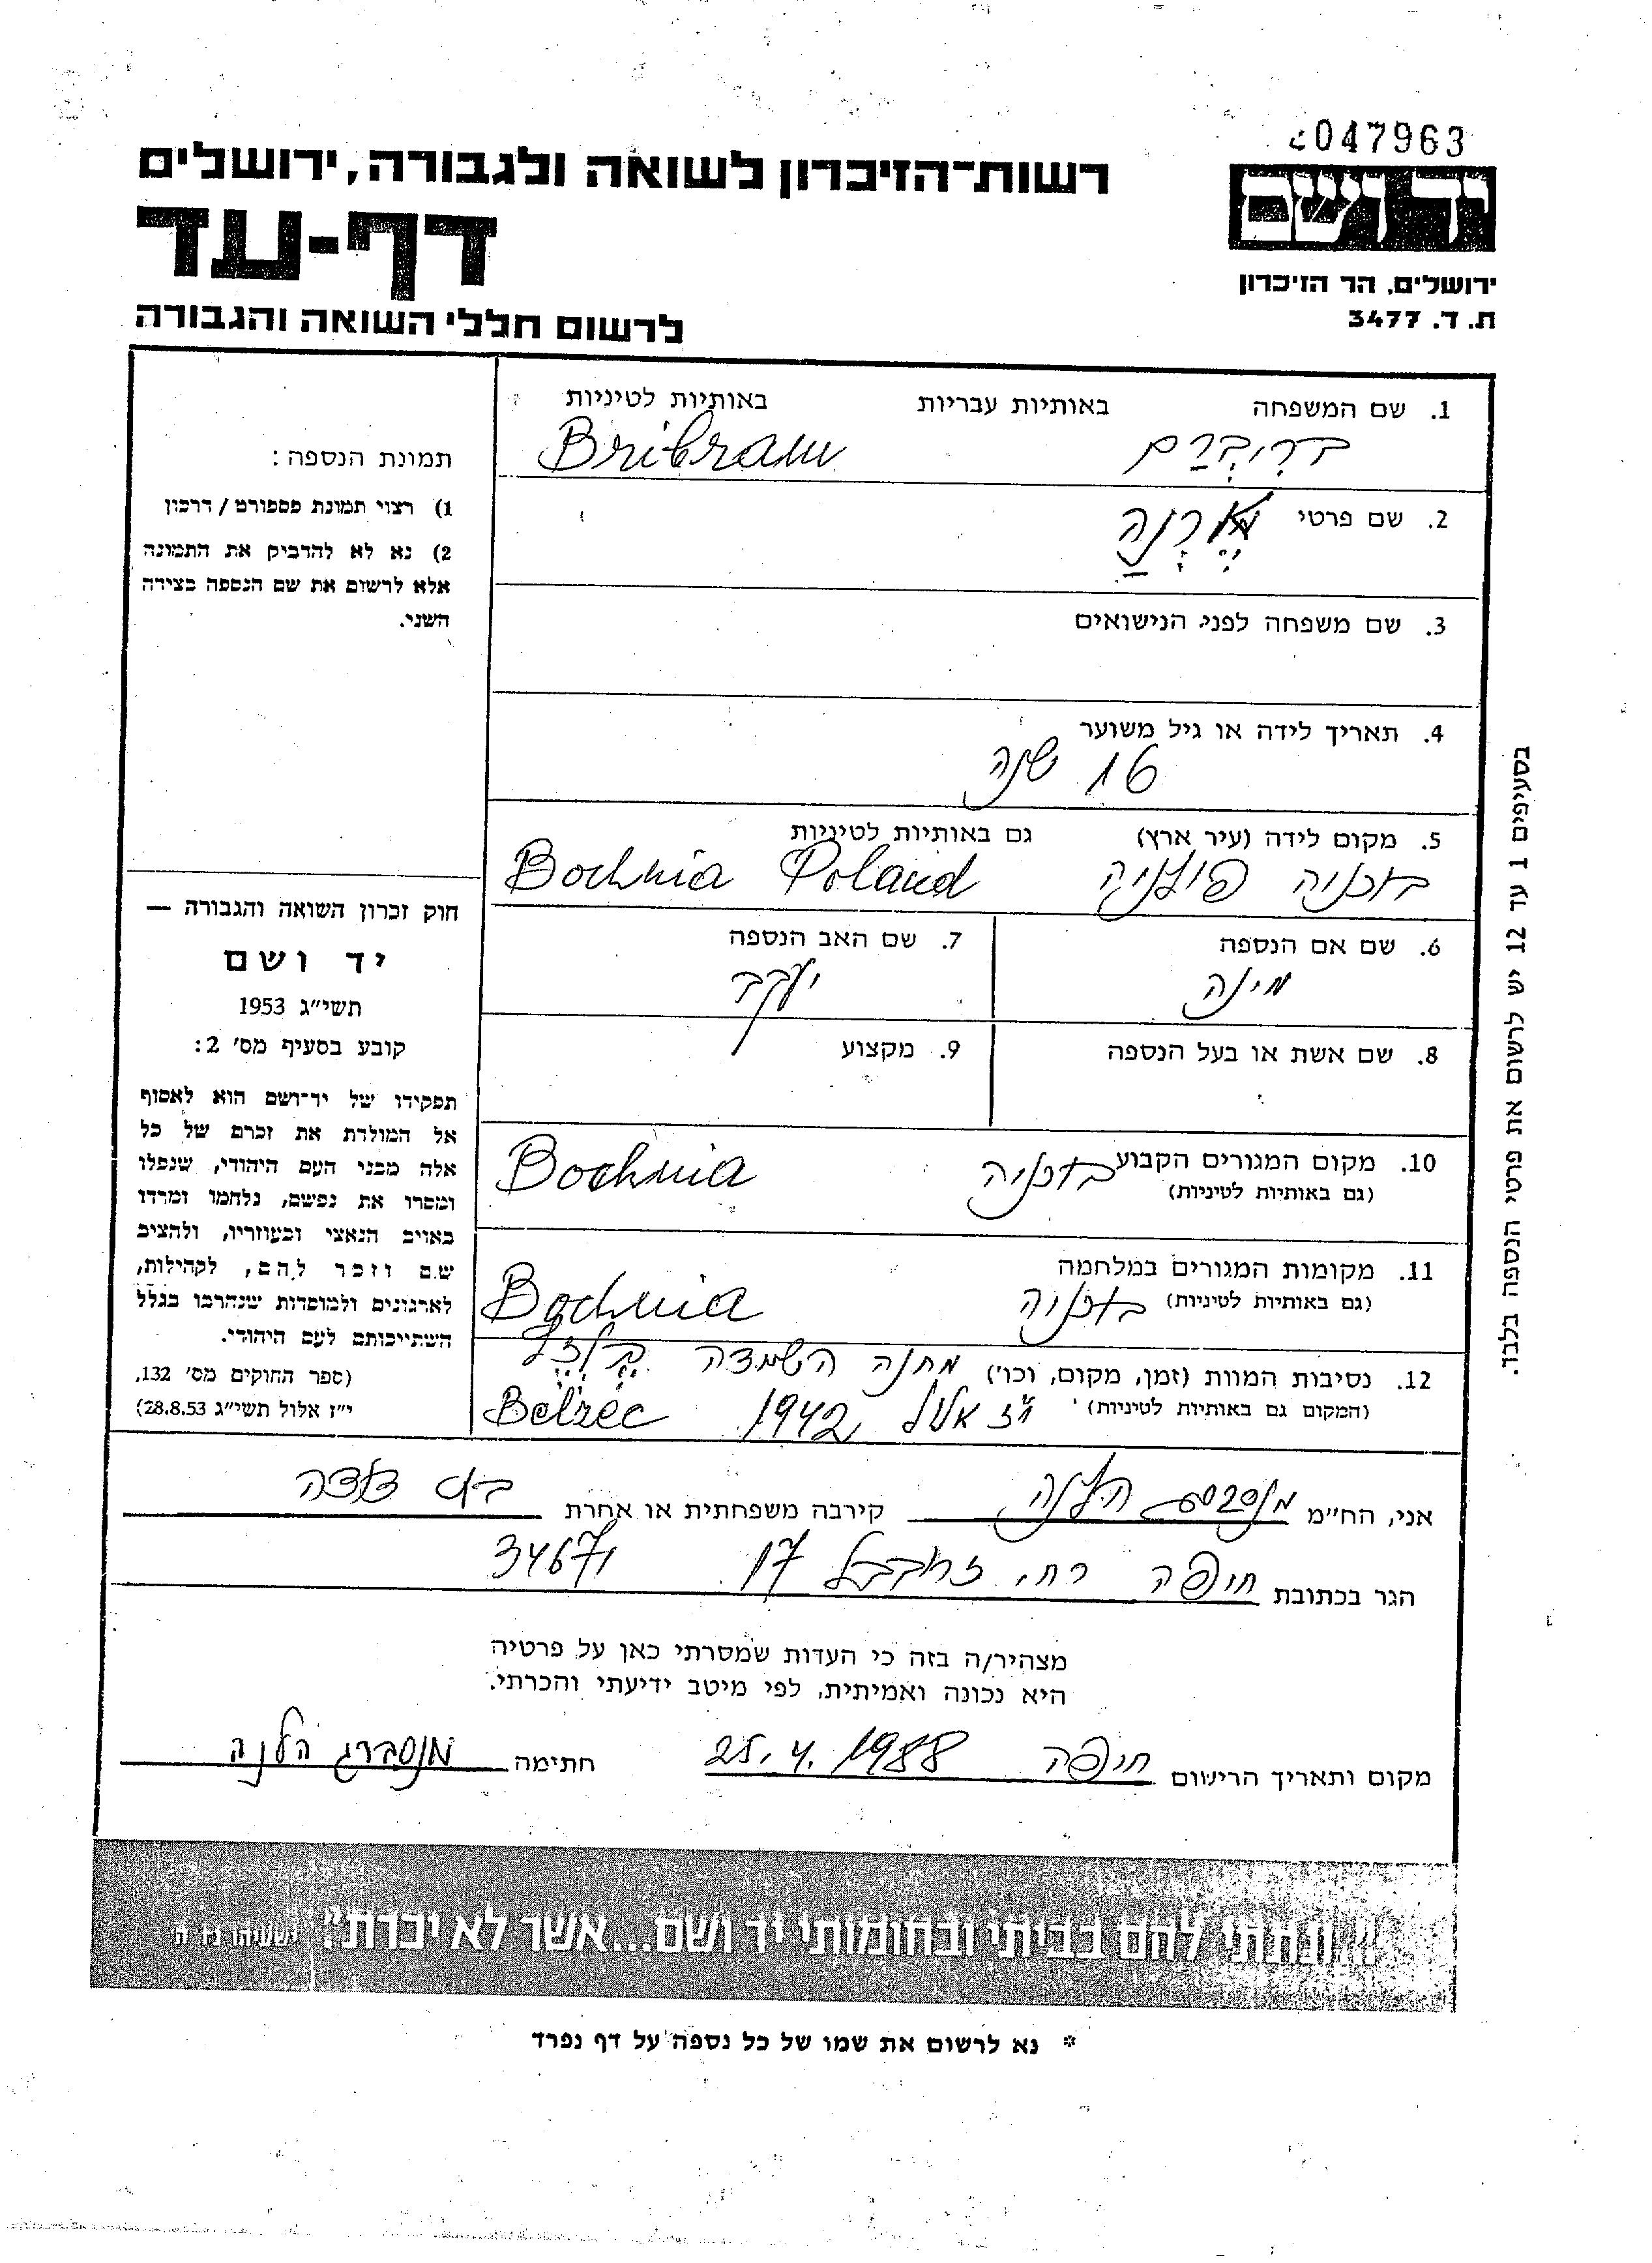 2047963
יד ושם
ירושלים, הר הזיכרון
ת. ד. 3477
רשות־הזיכרון לשואה ולגבורה, ירושלים
דף-עד
לרשום חללי השואה והגבורה
תמונת הנספה:
1) רצוי תמונת פספורט / דרכון
2) נא לא להדביק את התמונה
אלא לרשום את שם הנספה בצידה
השני.
חוק זכרון השואה והגבורה —
יד ושם
תשי״ג 1953
קובע בסעיף מס׳ 2:
תפקידו של יד־ושם הוא לאסוף
אל המולדת את זכרם של כל
אלה מבני העם היהודי, שנפלו
ומסרו את נפשם, נלחמו ומרדו
באויב הנאצי ובעוזריו, ולהציב
שם וזכר להם, לקהילות,
לארגונים ולמוסדות שנהרבו בגלל
השתייכותם לעם היהודי.
(ספר החוקים מס׳ 132,
י״ז אלול תשי״ג 28.8.53)
1. שם המשפחה באותיות עבריות באותיות לטיניות
בריברם Bribram
2. שם פרטי ארנה
3. שם משפחה לפני הנישואים
4. תאריך לידה או גיל משוער
16 שנה
5. מקום לידה (עיר ארץ) גם באותיות לטיניות
בוכניה פולניה Bochnia Poland
6. שם אם הנספה
מינה
7. שם האב הנספה
יעקב
8. שם אשת או בעל הנספה
9. מקצוע
10. מקום המגורים הקבוע בוכניה Bochnia
(גם באותיות לטיניות)
11. מקומות המגורים במלחמה
(גם באותיות לטיניות) בוכניה Bochnia
12. נסיבות המוות (זמן, מקום, וכו׳) מחנה השמדה בלזץ
(המקום גם באותיות לטיניות) י״ז אלול 1942 Belzec
בסעיפים 1 עד 12 יש לרשום את פרטי הנספה בלבד.
אני, הח״מ מנסברג הלנה קירבה משפחתית או אחרת בת דודה
הגר בכתובת חיפה רח׳ זרובבל 17 34671
מצהיר/ה בזה כי העדות שמסרתי כאן על פרטיה
היא נכונה ואמיתית, לפי מיטב ידיעתי והכרתי.
מקום ותאריך הרישום חיפה 25.4.1988 חתימה מנסברג הלנה
״ונתתי להם בביתי ובחומותי יד ושם...אשר לא יכרת״. ישעיהו נו ה
* נא לרשום את שמו של כל נספה על דף נפרד